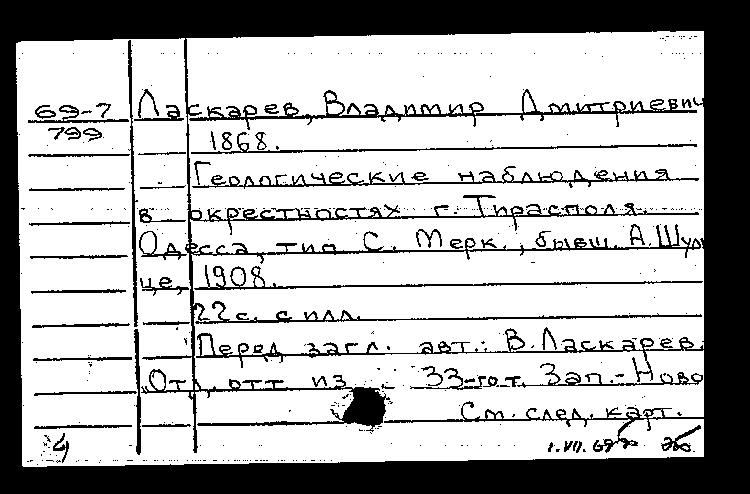 69-7 Ласкарев, Владимир Дмитриевич
799 1868.
Геологические наблюдения
в окрестностях г. Тирасполя.
Одесса, тип С. Мерк., бывш. А. Шуль
це, 1908.
22 с. с илл.
Перед загл. авт.: В. Ласкарев.
"Отд. отт. из 33-го т. Зап. Ново
См. след. карт.
4 1.VII.69